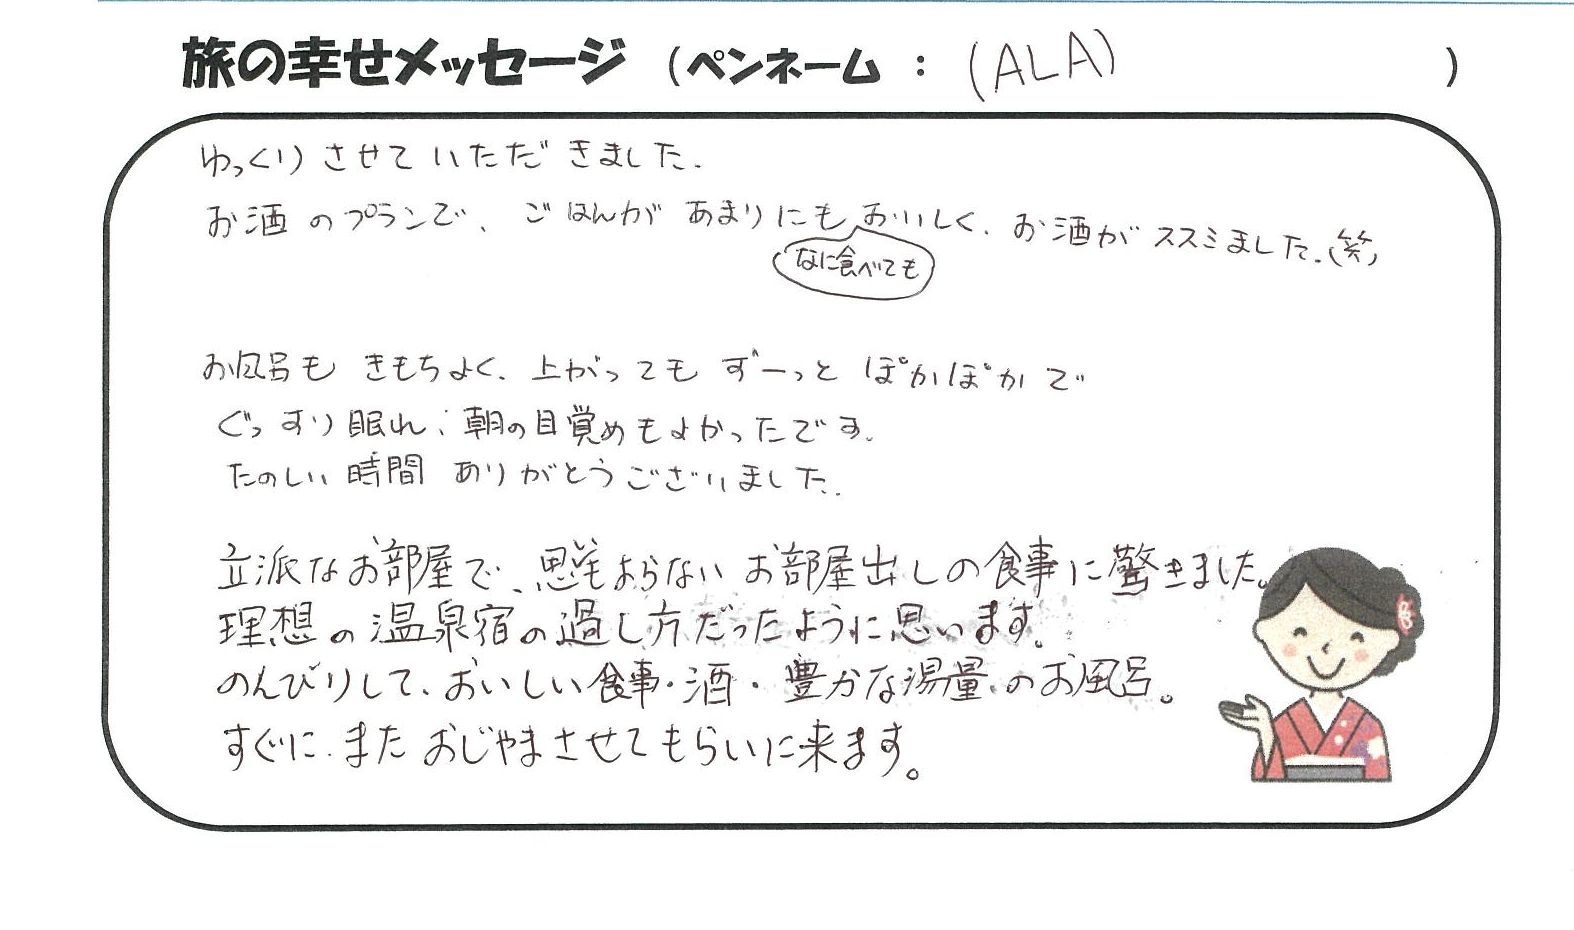 旅の幸せメッセージ (ペンネーム : (ALA) )
ゆっくりさせていただきました.
お酒のプランで、ごはんがあまりにもおいしく、お酒がススミました.(笑)
なに食べても
お風呂もきもちよく、上がってもずーっとぽかぽかで
ぐっすり眠れ、朝の目覚めもよかったです.
たのしい時間ありがとうございました.
立派なお部屋で、思いもよらないお部屋出しの食事に驚きました。
理想の温泉宿の過し方だったように思います。
のんびりして、おいしい食事・酒・豊かな湯量のお風呂。
すぐに、またおじゃまさせてもらいに来ます。